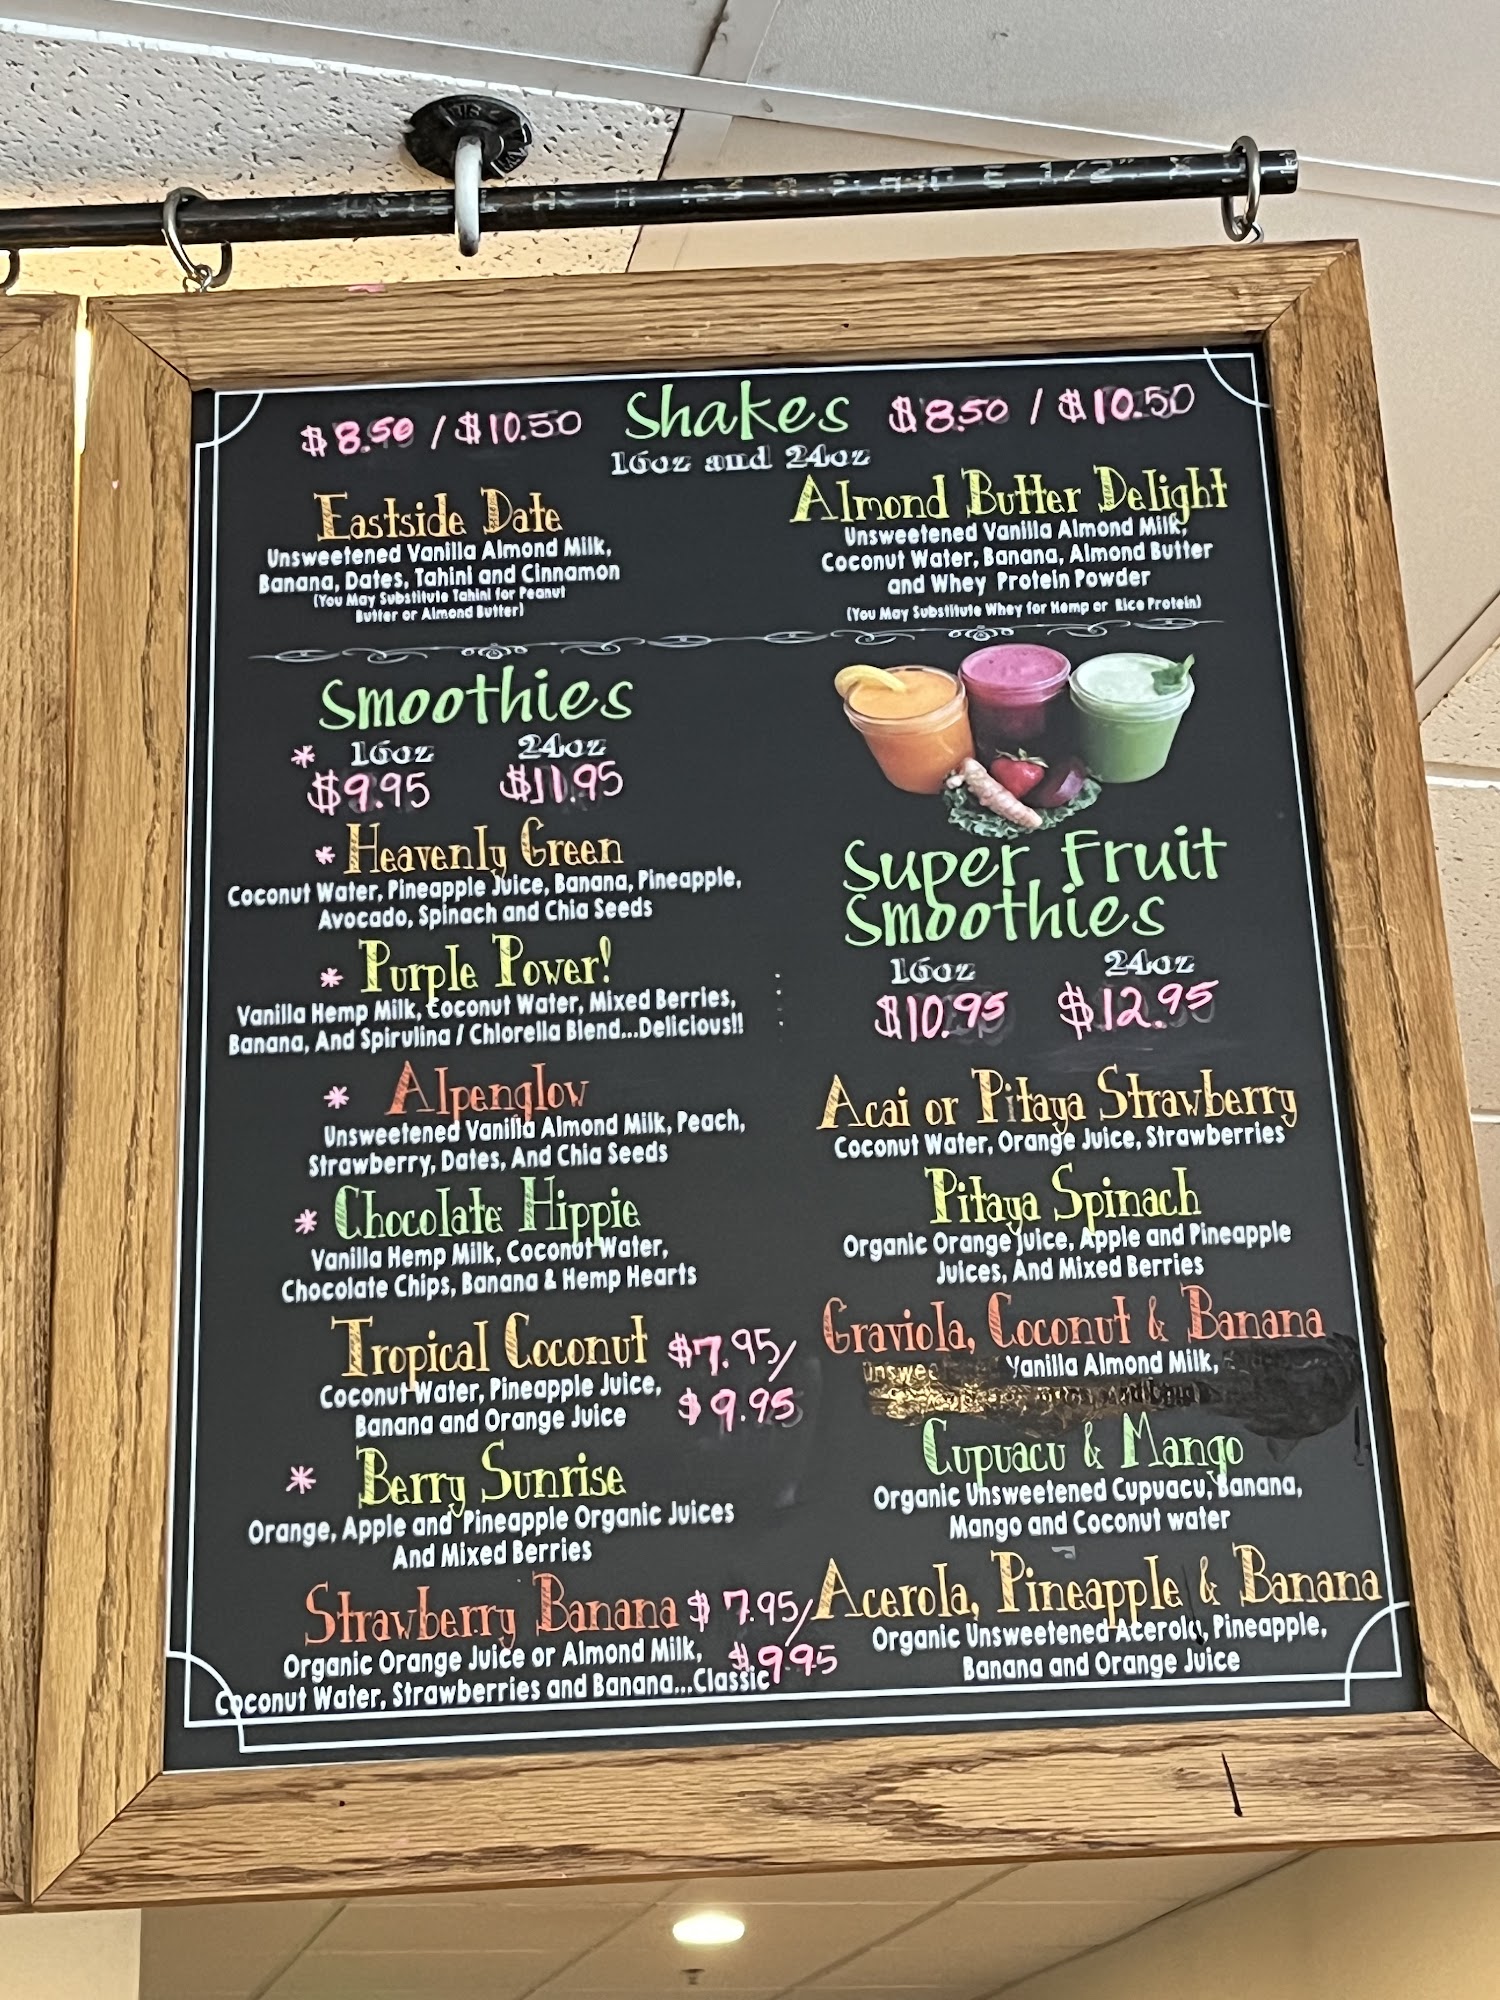 $8.50 / $10.50 Shakes $8.50 / $10.50
16oz and 24oz
Eastside Date
Unsweetened Vanilla Almond Milk,
Banana, Dates, Tahini and Cinnamon
(You May Substitute Tahini for Peanut
Butter or Almond Butter)
Almond Butter Delight
Unsweetened Vanilla Almond Milk,
Coconut Water, Banana, Almond Butter
and Whey Protein Powder
(You May Substitute Whey for Hemp or Rice Protein)
Smoothies
* 16oz 24oz
$9.95 $11.95
* Heavenly Green
Coconut Water, Pineapple Juice, Banana, Pineapple,
Avocado, Spinach and Chia Seeds
* Purple Power!
Vanilla Hemp Milk, Coconut Water, Mixed Berries,
Banana, And Spirulina / Chlorella Blend...Delicious!!
* Alpenglow
Unsweetened Vanilla Almond Milk, Peach,
Strawberry, Dates, And Chia Seeds
* Chocolate Hippie
Vanilla Hemp Milk, Coconut Water,
Chocolate Chips, Banana & Hemp Hearts
Tropical Coconut $7.95/
Coconut Water, Pineapple Juice,
$9.95
Banana and Orange Juice
* Berry Sunrise
Orange, Apple and Pineapple Organic Juices
And Mixed Berries
Strawberry Banana $7.95/
Organic Orange Juice or Almond Milk,
$9.95
Coconut Water, Strawberries and Banana...Classic
Super Fruit
Smoothies
16oz 24oz
$10.95 $12.95
Acai or Pitaya Strawberry
Coconut Water, Orange Juice, Strawberries
Pitaya Spinach
Organic Orange Juice, Apple and Pineapple
Juices, And Mixed Berries
Graviola, Coconut & Banana
Vanilla Almond Milk,
Cupuacu & Mango
Organic Unsweetened Cupuacu, Banana,
Mango and Coconut water
Acerola, Pineapple & Banana
Organic Unsweetened Acerola, Pineapple,
Banana and Orange Juice